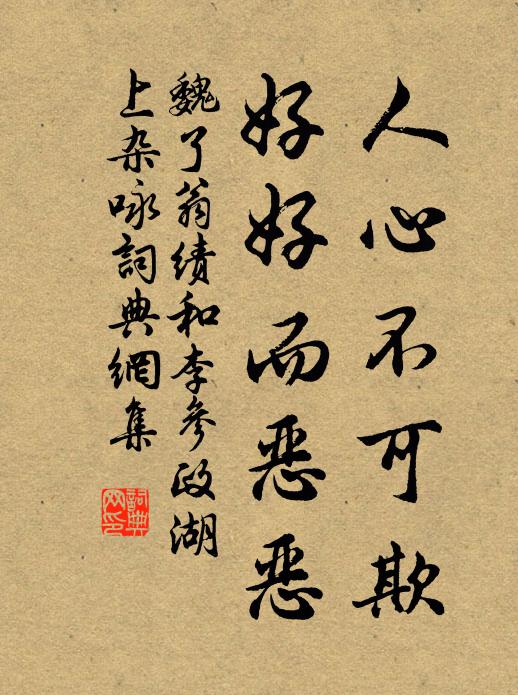 人心不可欺
好好而恶恶
魏了翁績和李參政湖
上杂咏詞典網集
詞典
网印